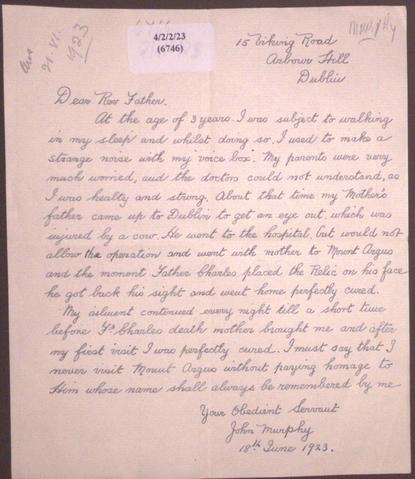 Ans
21.VI.
1923
4/2/2/23
(6746)
Murphy
15 Viking Road
Arbour Hill
Dublin
Dear Rev Father.
At the age of 3 years. I was subject to walking
in my sleep and whilst doing so, I used to make a
strange noise with my voice box. My parents were very
much worried, and the doctors could not understand, as
I was healty and strong. About that time my Mother's
father came up to Dublin to get an eye out, which was
injured by a cow. He went to the hospital, but would not
allow the operation and went with mother to Mount Argus
and the moment Father Charles placed the Relic on his face
he got back his sight and went home perfectly cured.
My ailment continued every night till a short time
before Fr. Charles death mother brought me and after
my first visit I was perfectly cured. I must say that I
never visit Mount Argus without paying homage to
Him whose name shall always be remembered by me
Your Obedient Servant
John Murphy
18th June 1923.